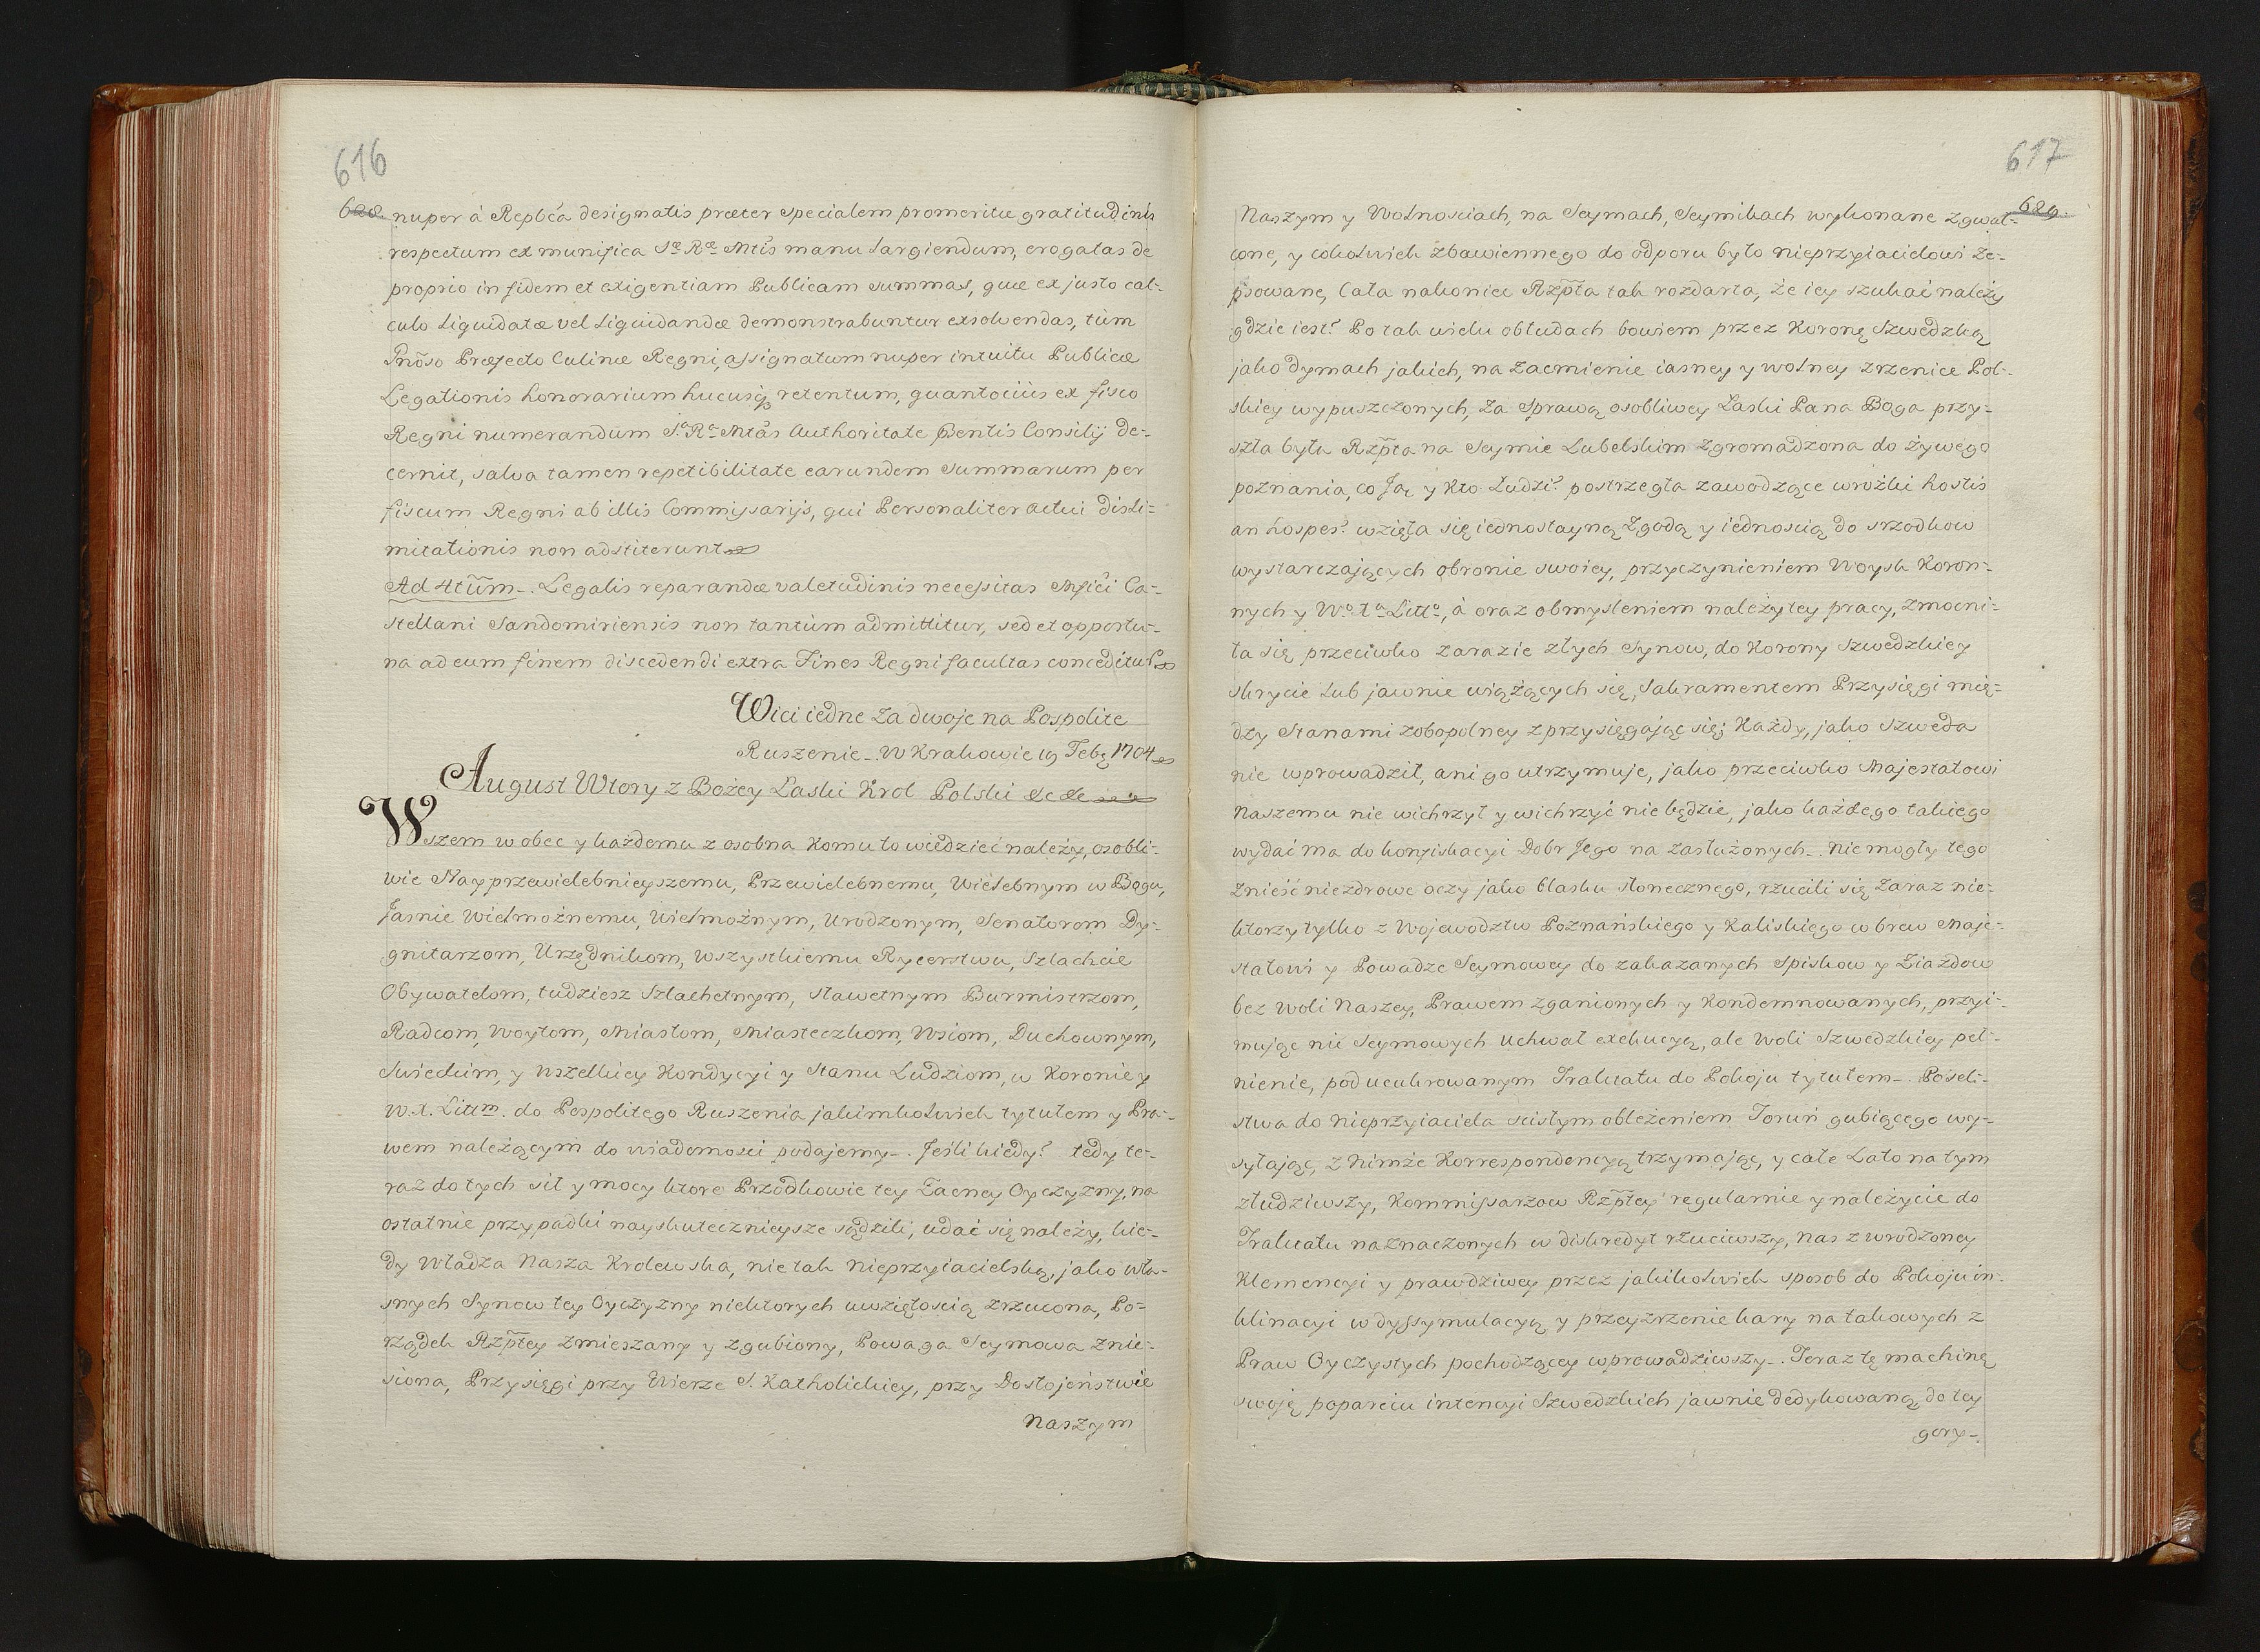 616
628. nuper á Replca designatis præter specialem promeritæ gratitudinis
respectum ex munifica Sæ Ræ Mtis manu largiendum, erogatas de
proprio in fidem et exigentiam Publicam summas, quæ ex justo cal-
culo Liquidatæ vel Liquidandæ demonstrabuntur exsolvendas, tùm
Præfecto Culinæ Regni, assignatum nuper intuitu Publicæ
Legationis honorarium hucusq retentum, quantociùs ex fisco
Regni numerandum Sa Ra Mtas Authoritate Pentis Consilij de-
cernit, salva tamen repetibilitate earundem summarum per
fiscum Regni ab illis Commissarijs, qui Personaliter actui disli-
mitationis non adstiterunt
Ad 4tum. Legalis reparandæ valetudinis necessitas Mfici Ca-
stellani Sandomiriensis non tantùm admittitur, sed et opportu-
na ad eum finem discedendi extra Fines Regni facultas conceditur
Wici iedne za dwoje na Pospolite
Ruszenie. W Krakowie 19 Feb 1704
August Wtory z Bożey Laski Krol Polski &c &c
Wszem wobec y każdemu z osobna komu to wiedzieć należy, osobli-
wie Nayprzewielebnieyszemu, Przewielebnemu, Wielebnym w Bogu,
Jasnie Wielmożnemu, Wielmożnym, Urodzonym, Senatorom Dy-
gnitarzom, Urzędnikom, wszystkiemu Rycerstwu, Szlachcie
Obywatelom, tudziesz Szlachetnym, Sławetnym Burmistrzom,
Radcom, Woytom, Miastom, Miasteczkom, Wsiom, Duchownym,
Swieckim, y wszelkiey Kondycyi y Stanu Ludziom, w Koronie y
W. X. Littm. do Pospolitego Ruszenia jakimkolwiek tytułem y Pra-
wem należącym do wiadomosci podajemy. Jeśli kiedy? tedy te-
raz do tych sił y mocy ktore Przodkowie tey Zacney Oyczyzny, na
ostatnie przypadki nayskutecznieysze sądzili, udać się należy, kie-
dy Władza Nasza Krolewska, nie tak nieprzyiacielską, jako wła-
snych Synow tey Oyczyzny niektorych uwziętoscią zrzucona, Po-
rządek Rzptey zmieszany y zgubiony, Powaga Seymowa znie-
siona, Przysięgi przy Wierze S. Katholickiey, przy Dostojeństwie
Naszym
617
629.
Naszym y Wolnosciach, na Seymach, Seymikach wykonane zgwał-
cone, y cokolwiek zbawiennego do odporu było nieprzyiacielowi ze-
psowane, Cała nakoniec Rzpta tak rozdarta, że iey szukać należy
gdzie iest? Po tak wielu obłudach bowiem przez Koronę Szwedzką
jako dymach jakich, na zacmienie iasney y wolney zrzenice Pol-
skiey wypuszczonych, za Sprawą osobliwey Łaski Pana Boga przy-
szła była Rzpta na Seymie Lubelskim zgromadzona do żywego
poznania, co Ją y kto Łudzi? postrzegła zawodzące wrożki hostis
an hospes? wzięła się iednostayną zgodą y iednością do srzodkow
wystarczających obronie swoiey, przyczynieniem Woysk Koron-
nych y Wo Xa Litto, á oraz obmysleniem należytey pracy, zmocni-
ła się przeciwko zarazie złych Synow, do Korony Szwedzkiey
skrycie lub jawnie wiążących się, Sakramentem Przysięgi mię-
dzy Stanami zobopolney zprzysięgając się; Każdy, jako Szweda
nie wprowadził, ani go utrzymuje, jako przeciwko Majestatowi
Naszemu nie wichrzył y wichrzyć nie będzie, jako każdego takiego
wydać ma do konfiskacyi Dobr Jego na zasłużonych. Nie mogły tego
znieść niezdrowe oczy jako blasku słonecznego, rzucili się zaraz nie-
ktorzy tylko z Wojewodztw Poznańskiego y Kaliskiego w brew Maje-
statowi y Powadze Seymowey do zakazanych Spiskow y Ziazdow
bez Woli Naszey, Prawem zganionych y Kondemnowanych, przyi-
mując nie Seymowych Uchwał exekucyą, ale Woli Szwedzkiey peł-
nienie, pod ucukrowanym Traktatu do Pokoju tytułem. Posel-
stwa do Nieprzyiaciela scisłym oblężeniem Toruń gubiącego wy-
syłając, z nimże Korrespondencyą trzymając, y całe Lato na tym
złudziwszy, Kommissarzow Rzptey regularnie y należycie do
Traktatu naznaczonych w diskredyt rzuciwszy, nas z wrodzoney
Klemencyi y prawdziwey przez jakikolwiek sposob do Pokoju in-
klinacyi w dyssymulacyą y przeyzrzenie kary na takowych z
Praw Oyczystych pochodzącey wprowadziwszy. Teraz tę machinę
swoję poparciu intencyi Szwedzkich jawnie dedykowaną, do tey
gory